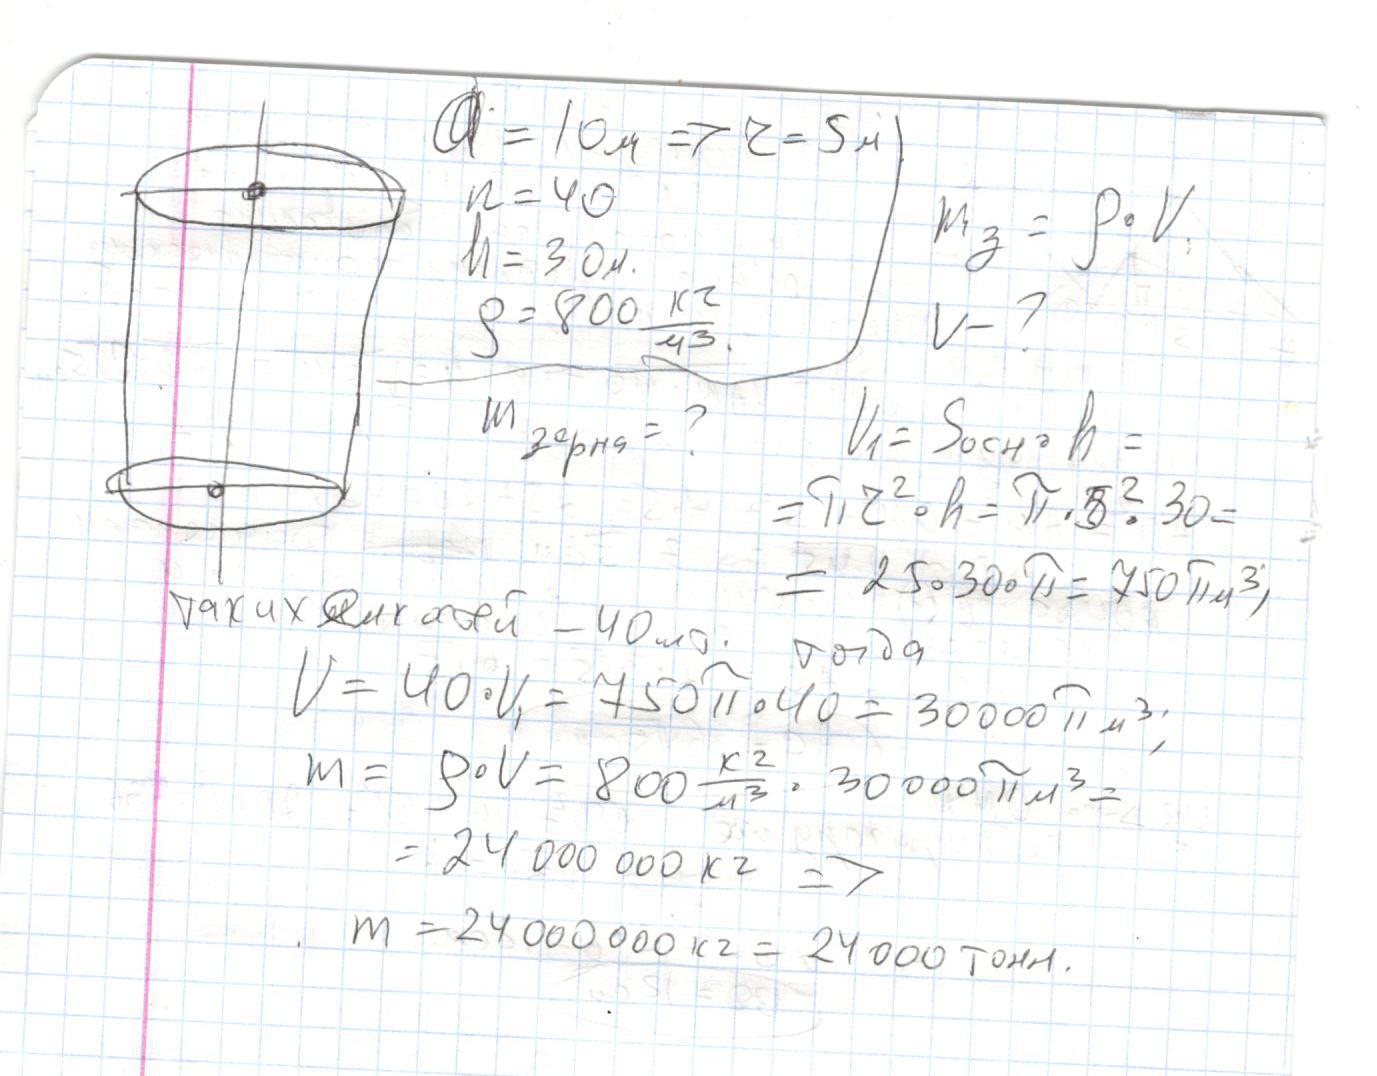 d = 10м => r = 5м
n = 40
h = 30м.
ρ = 800 кг/м³.
m зерна = ?
m з = ρ · V.
V - ?
V₁ = Sосн · h =
= πr² · h = π · 5² · 30 =
= 25 · 30 · π = 750π м³;
таких емкостей – 40 шт. тогда
V = 40 · V₁ = 750π · 40 = 30000π м³;
m = ρ · V = 800 кг/м³ · 30000π м³ =
= 24 000 000 кг =>
m = 24 000 000 кг = 24 000 тонн.